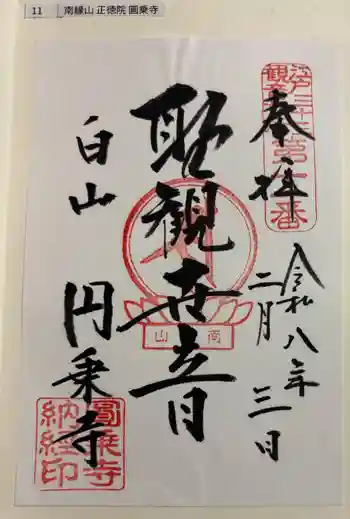 11 南縁山 正徳院 圓乗寺
江戸三十三
観音
第十一番
奉拝
令和八年
二月三日
聖観世音
南山
白山
円乗寺
圓乗寺
納経印